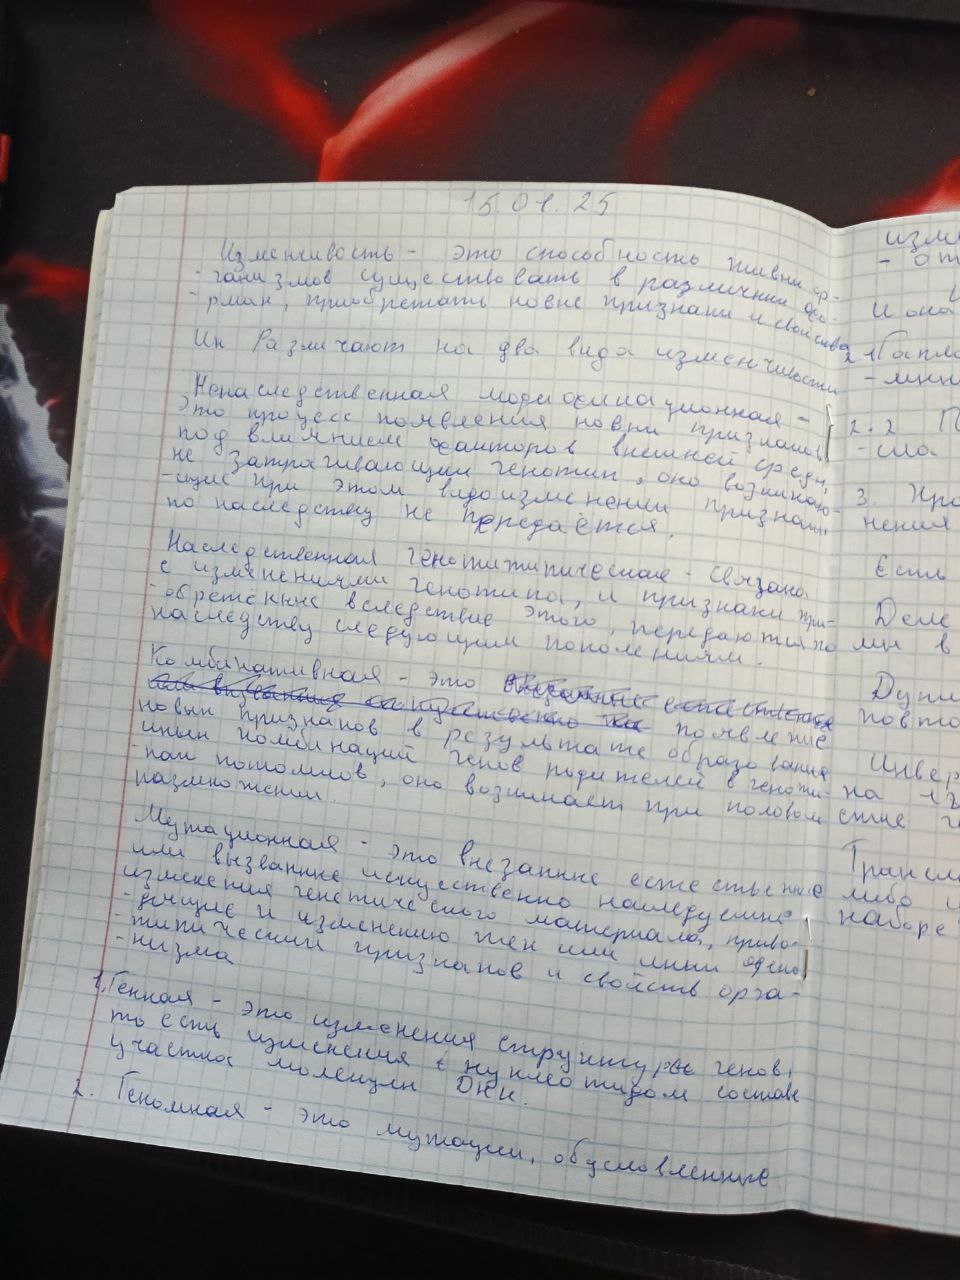 15.01.25
Изменчивость - это способность живых ор-
-ганизмов существовать в различных фо-
-рмах, приобретать новые признаки и свойства
Их Различают на два вида изменчивости
Ненаследственная модификационная -
это процесс появления новых признаков
под влиянием факторов внешней среды,
не затрагивающих генотип, оно возникаю-
-щие при этом видоизменении признаки
по наследству не передаётся.
Наследственная генотипическая - связана
с изменениями генотипа, и признаки при-
-обретённые вследствие этого, передаются по
наследству следующим поколениям.
Комбинативная - это
появление
новых признаков в результате образования
иных комбинаций генов родителей в геноти-
-пах потомков, оно возникает при половом
размножении.
Мутационная - это внезапные естественные
или вызванные искусственно наследуемые
изменения генетического материала, приво-
-дящие к изменению тех или иных фено
-типических признаков и свойств орга-
-низма
1. Генная - это изменения структуры генов,
то есть изменения в нуклеотидом составе
участка молекулы ДНК.
2. Геномная - это мутации, обусловленные
изм
- от
И она
2.1 Гапло
2.2 П
3. Хро
нения
Есть
Деле
ми в
Дупл
повто
Инвер
на 18
Трансл
либо
наборе